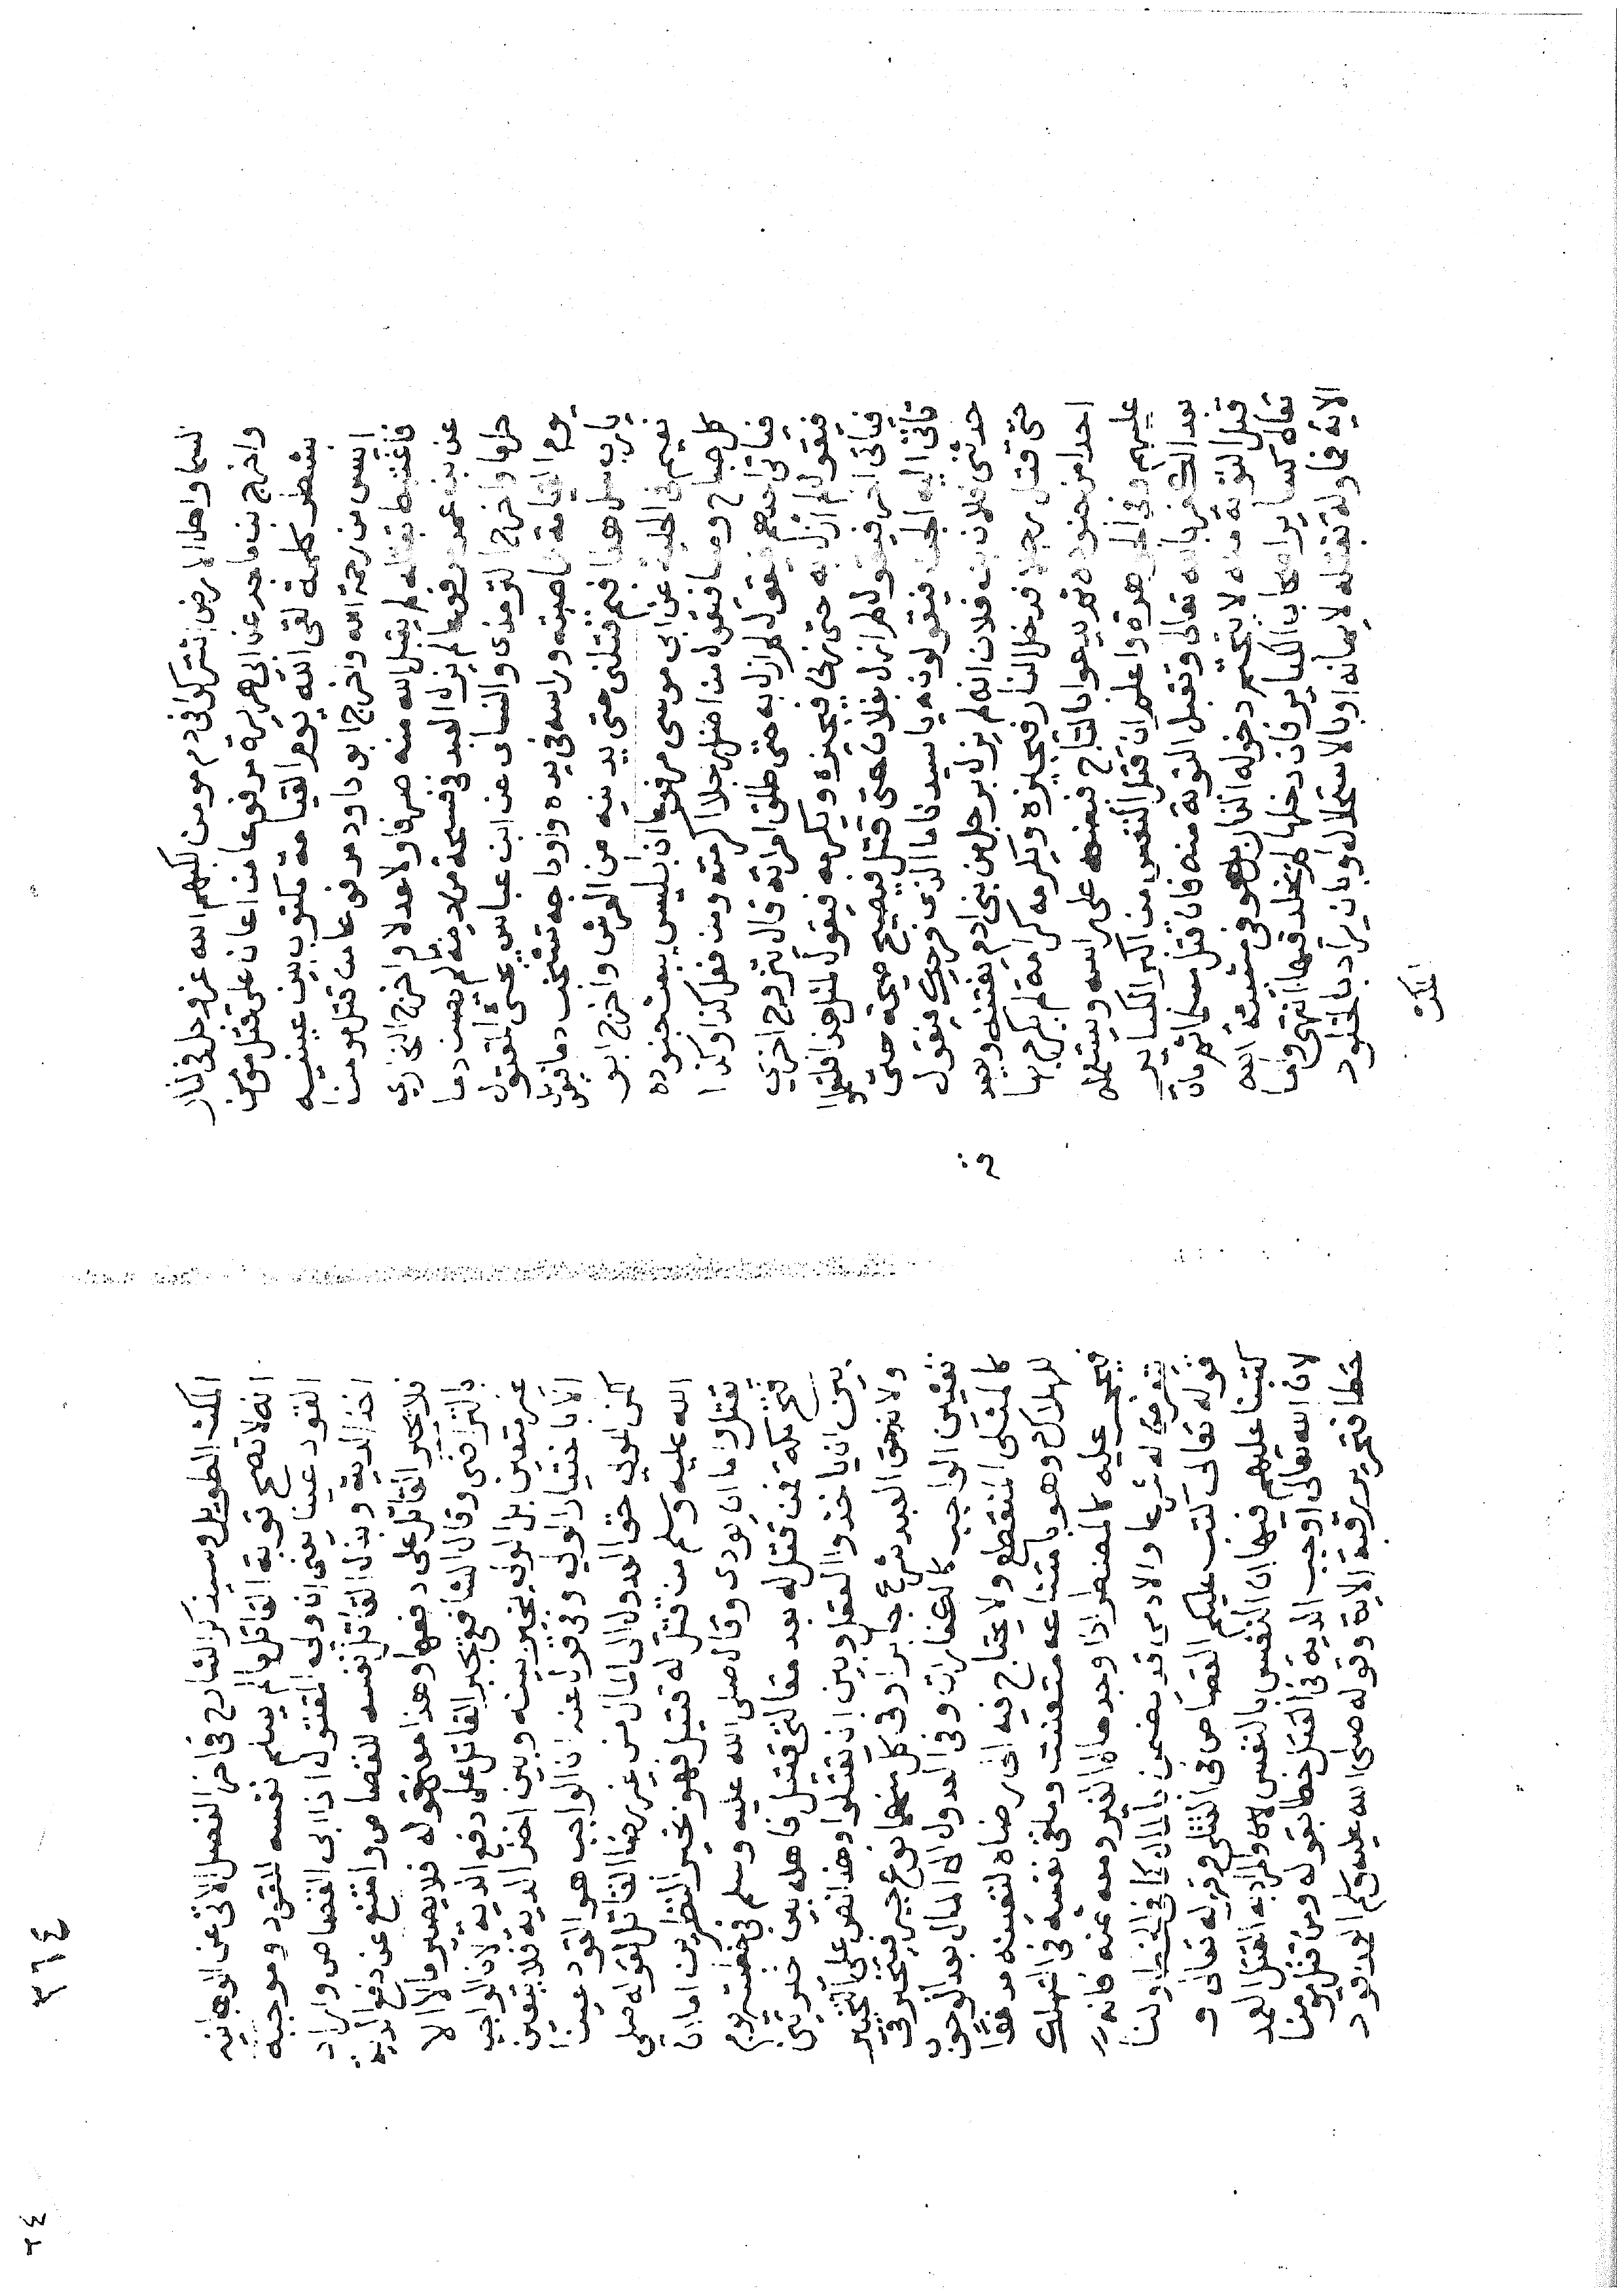 السما واهل الارض اشتركوا في دم مومن لكبهم الله عز وجل في النار
واخرج ابن ماجه عن ابي هريرة مرفوعا من اعان على قتل مومن
بشطر كلمة لقي الله يوم القيامة مكتوب بين عينيه
ايس من رحمة الله واخرج ابو داود مرفوعا من قتل مومنا
فاغتبط بقتله لم يقبل الله منه صرفا ولا عدلا واخرج البخاري
عن ابن عمر مرفوعا لم يزل العبد في فسحة من دينه ما لم يصب دما
حراما واخرج الترمذي والنساي عن ابن عباس يجئ المقتول
يوم القيامة ناصيته وراسه في يده واوداجه تشخب دما فيقول
يارب سل هذا فيم قتلني حتى يدنيه من العرش واخرج ابو
نعيم في الحلية عن ابي موسى مرفوعا ان ابليس يبعث جنوده
كل صباح ومسا فيقول من اضل رجلا اكرمته ومن فعل كذا وكذا
فياتي احدهم فيقول لم ازل به حتى طلق امراته قال يتزوج اخري
فيقول لم ازل به حتى زنى فيجيزه ويكرمه فيقول لمثل هذا فاعملوا
فياتي اخر فيقول لم ازل بفلان حتى قتل فيصيح صيحة حتى
تاتي اليه الجن فيقولون يا سيدنا ما الذي فرحك فيقول
حدثني فلان بن فلان انه لم يزل برجل من بني ادم يفتنه ويصد
حتى قتل رجلا فدخل النار فيجيزه ويكرمه كرامة لم يكرم بها
احدا من جنوده ثم يدعوا بالتاج فيضعه على راسه ويستعمله
عليهم وفي الجوهرة واعلم ان قتل النفس من اكبر الكباير
بعد الكفر بالله تعالى وتقبل التوبة منه فان قتل مسلما ثم مات
قبل التوبة منه لا يتحتم دخوله النار بل هو في مشيئة الله
تعالى كساير اصحاب الكباير فان دخلها لم يخلد فيها انتهى واما
الاية فماولة بقتله لايمانه او بالاستحلال او بان يراد بالخلود
المكث
المكث الطويل وسيذكر الشارح في اخر الفصل الاتي عن الوهبانيه
انه لا تصح توبة القاتل ما لم يسلم نفسه للقود وموجبه
القود عينا يعني ان ولي المقتول اذا ابى القصاص واراد
اخذ الدية وبذل القاتل نفسه للقصاص وامتنع عن دفع الدية
فلا يجبر القاتل على دفعها وهذا معنى قوله فلا يصير مالا الا
بالتراضي وقال الشافعي يجبر القاتل على دفع الدية لان الواجب
غير متعين بل الولي يخير بينه وبين اخذ الدية فلا يتعين
الا باختيار الولي وفي قول عنه ان الواجب هو القود عينا
لكن للولي حق العدول الى المال من غير رضا القاتل لقوله صلى
الله عليه وسلم من قتل له قتيل فهو بخير النظرين اما ان
يقتل واما ان يودى وقال صلى الله عليه وسلم في خطبته يوم
فتح مكة فمن قتل له بعد مقالتي قتيل فاهله بين خيرتين
بين ان ياخذوا العقل وبين ان يقتلوا وهذا نص على التخيير
ولان حق العبد شرع جابرا وفي كل منهما نوع جبر فيتخير في
تعيين الواجب كالكفارات وفي العدول الى المال بعد الوجود
كالمثلى المنقطع ولا يحتاج فيه الى رضاه لتعينه مدفعا
للهلاك وهو بامتناعه متعنت وملقى نفسه في التهلكة
فيجبر عليه كالمضطر اذا وجد مال الغير ومعه ثمنه فانه
يفترض له شرعا والادمي قد يضمن بالمال كما في الخطا ولنا
قوله تعالى كتب عليكم القصاص في القتلى وقوله تعالى و
كتبنا عليهم فيها ان النفس بالنفس الاية والمراد به القتل العمد
لان الله تعالى اوجب الدية في القتل خطا بقوله ومن قتل مومنا
خطا فتحرير رقبة الاية وقوله صلى الله عليه وسلم العمد قود
٣٦٤
٢٤